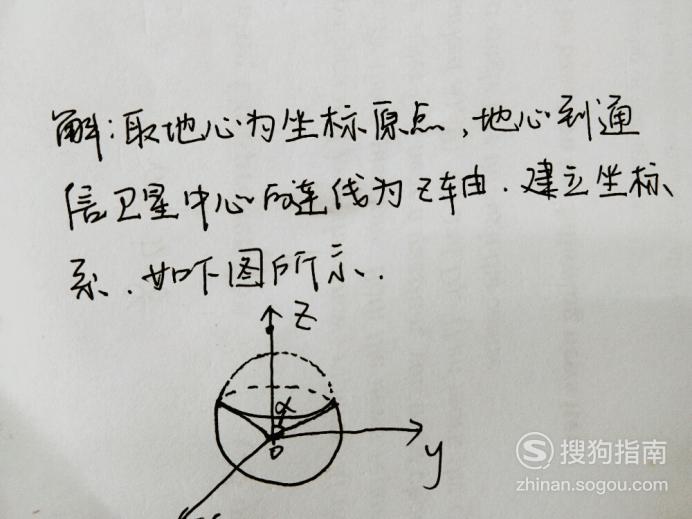 解:取地心为坐标原点,地心到通
信卫星中心的连线为Z轴由.建立坐标
系.如下图所示.
Z
α
O
y
搜狗指南
zhinan.sogou.com